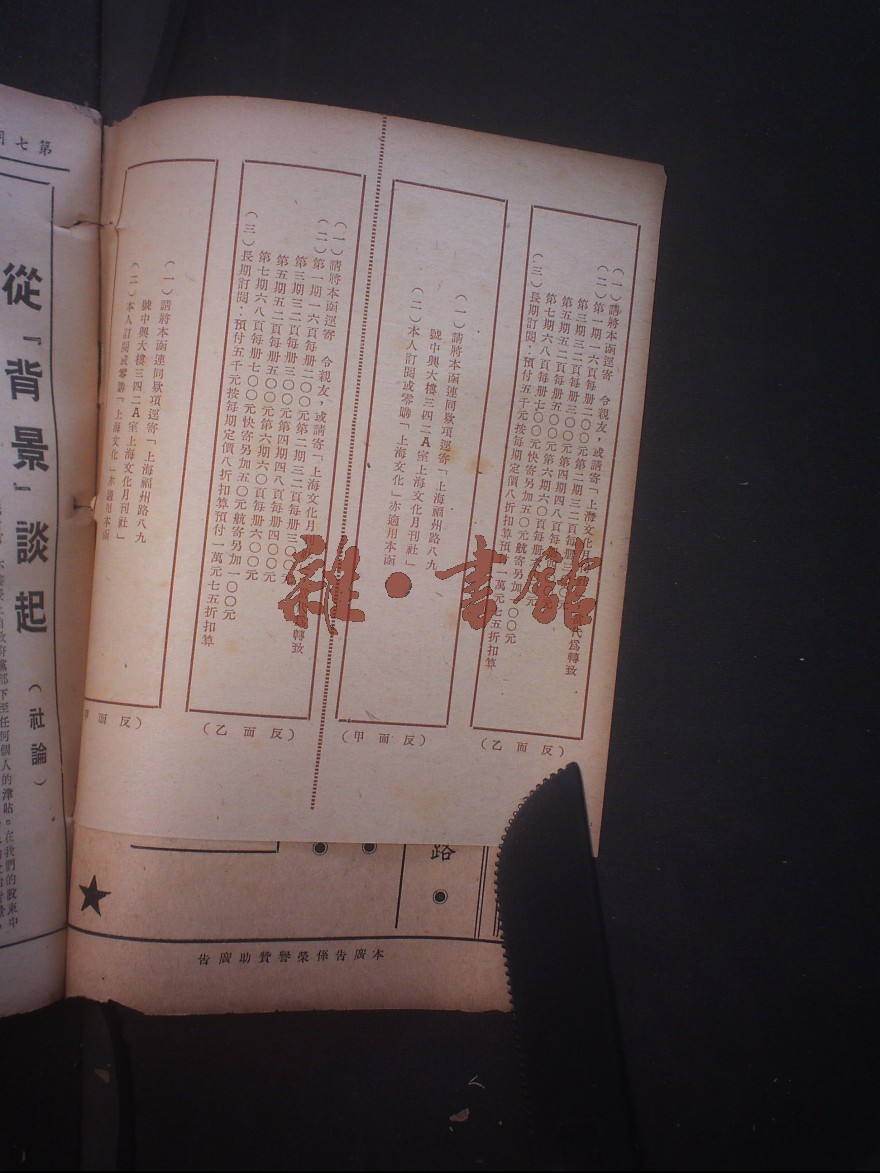 （一）請將本函逕寄 令親友，或請寄「上海文化月
代爲轉致
（二）第一期一六頁每册二〇〇元第二期三二頁每册三〇〇元
第三期三二頁每册三〇〇元第四期四八頁每册四〇〇元
第五期五二頁每册五〇〇元第六期六〇頁每册六〇〇元
第七期六八頁每册七〇〇元快寄另加五〇元航寄另加一〇〇元
（三）長期訂閱：預付五千元按每期定價八折扣算預付一萬元七五折扣算
（反面乙）
（一）請將本函連同欵項逕寄「上海福州路八九
號中興大樓三四二A室上海文化月刊社」
（二）本人訂閱或零購「上海文化」亦適用本函
（反面甲）
（一）請將本函逕寄 令親友，或請寄「上海文化月
爲轉致
（二）第一期一六頁每册二〇〇元第二期三二頁每册三〇〇元
第三期三二頁每册三〇〇元第四期四八頁每册四〇〇元
第五期五二頁每册五〇〇元第六期六〇頁每册六〇〇元
第七期六八頁每册七〇〇元快寄另加五〇元航寄另加一〇〇元
（三）長期訂閱：預付五千元按每期定價八折扣算預付一萬元七五折扣算
（反面乙）
（一）請將本函連同欵項逕寄「上海福州路八九
號中興大樓三四二A室上海文化月刊社」
（二）本人訂閱或零購「上海文化」亦適用本函
（反面
雜·書館
路
本廣告係榮譽贊助廣告
第七期
從「背景」談起
（社論）
下至任何個人的津貼。在我們的股東中